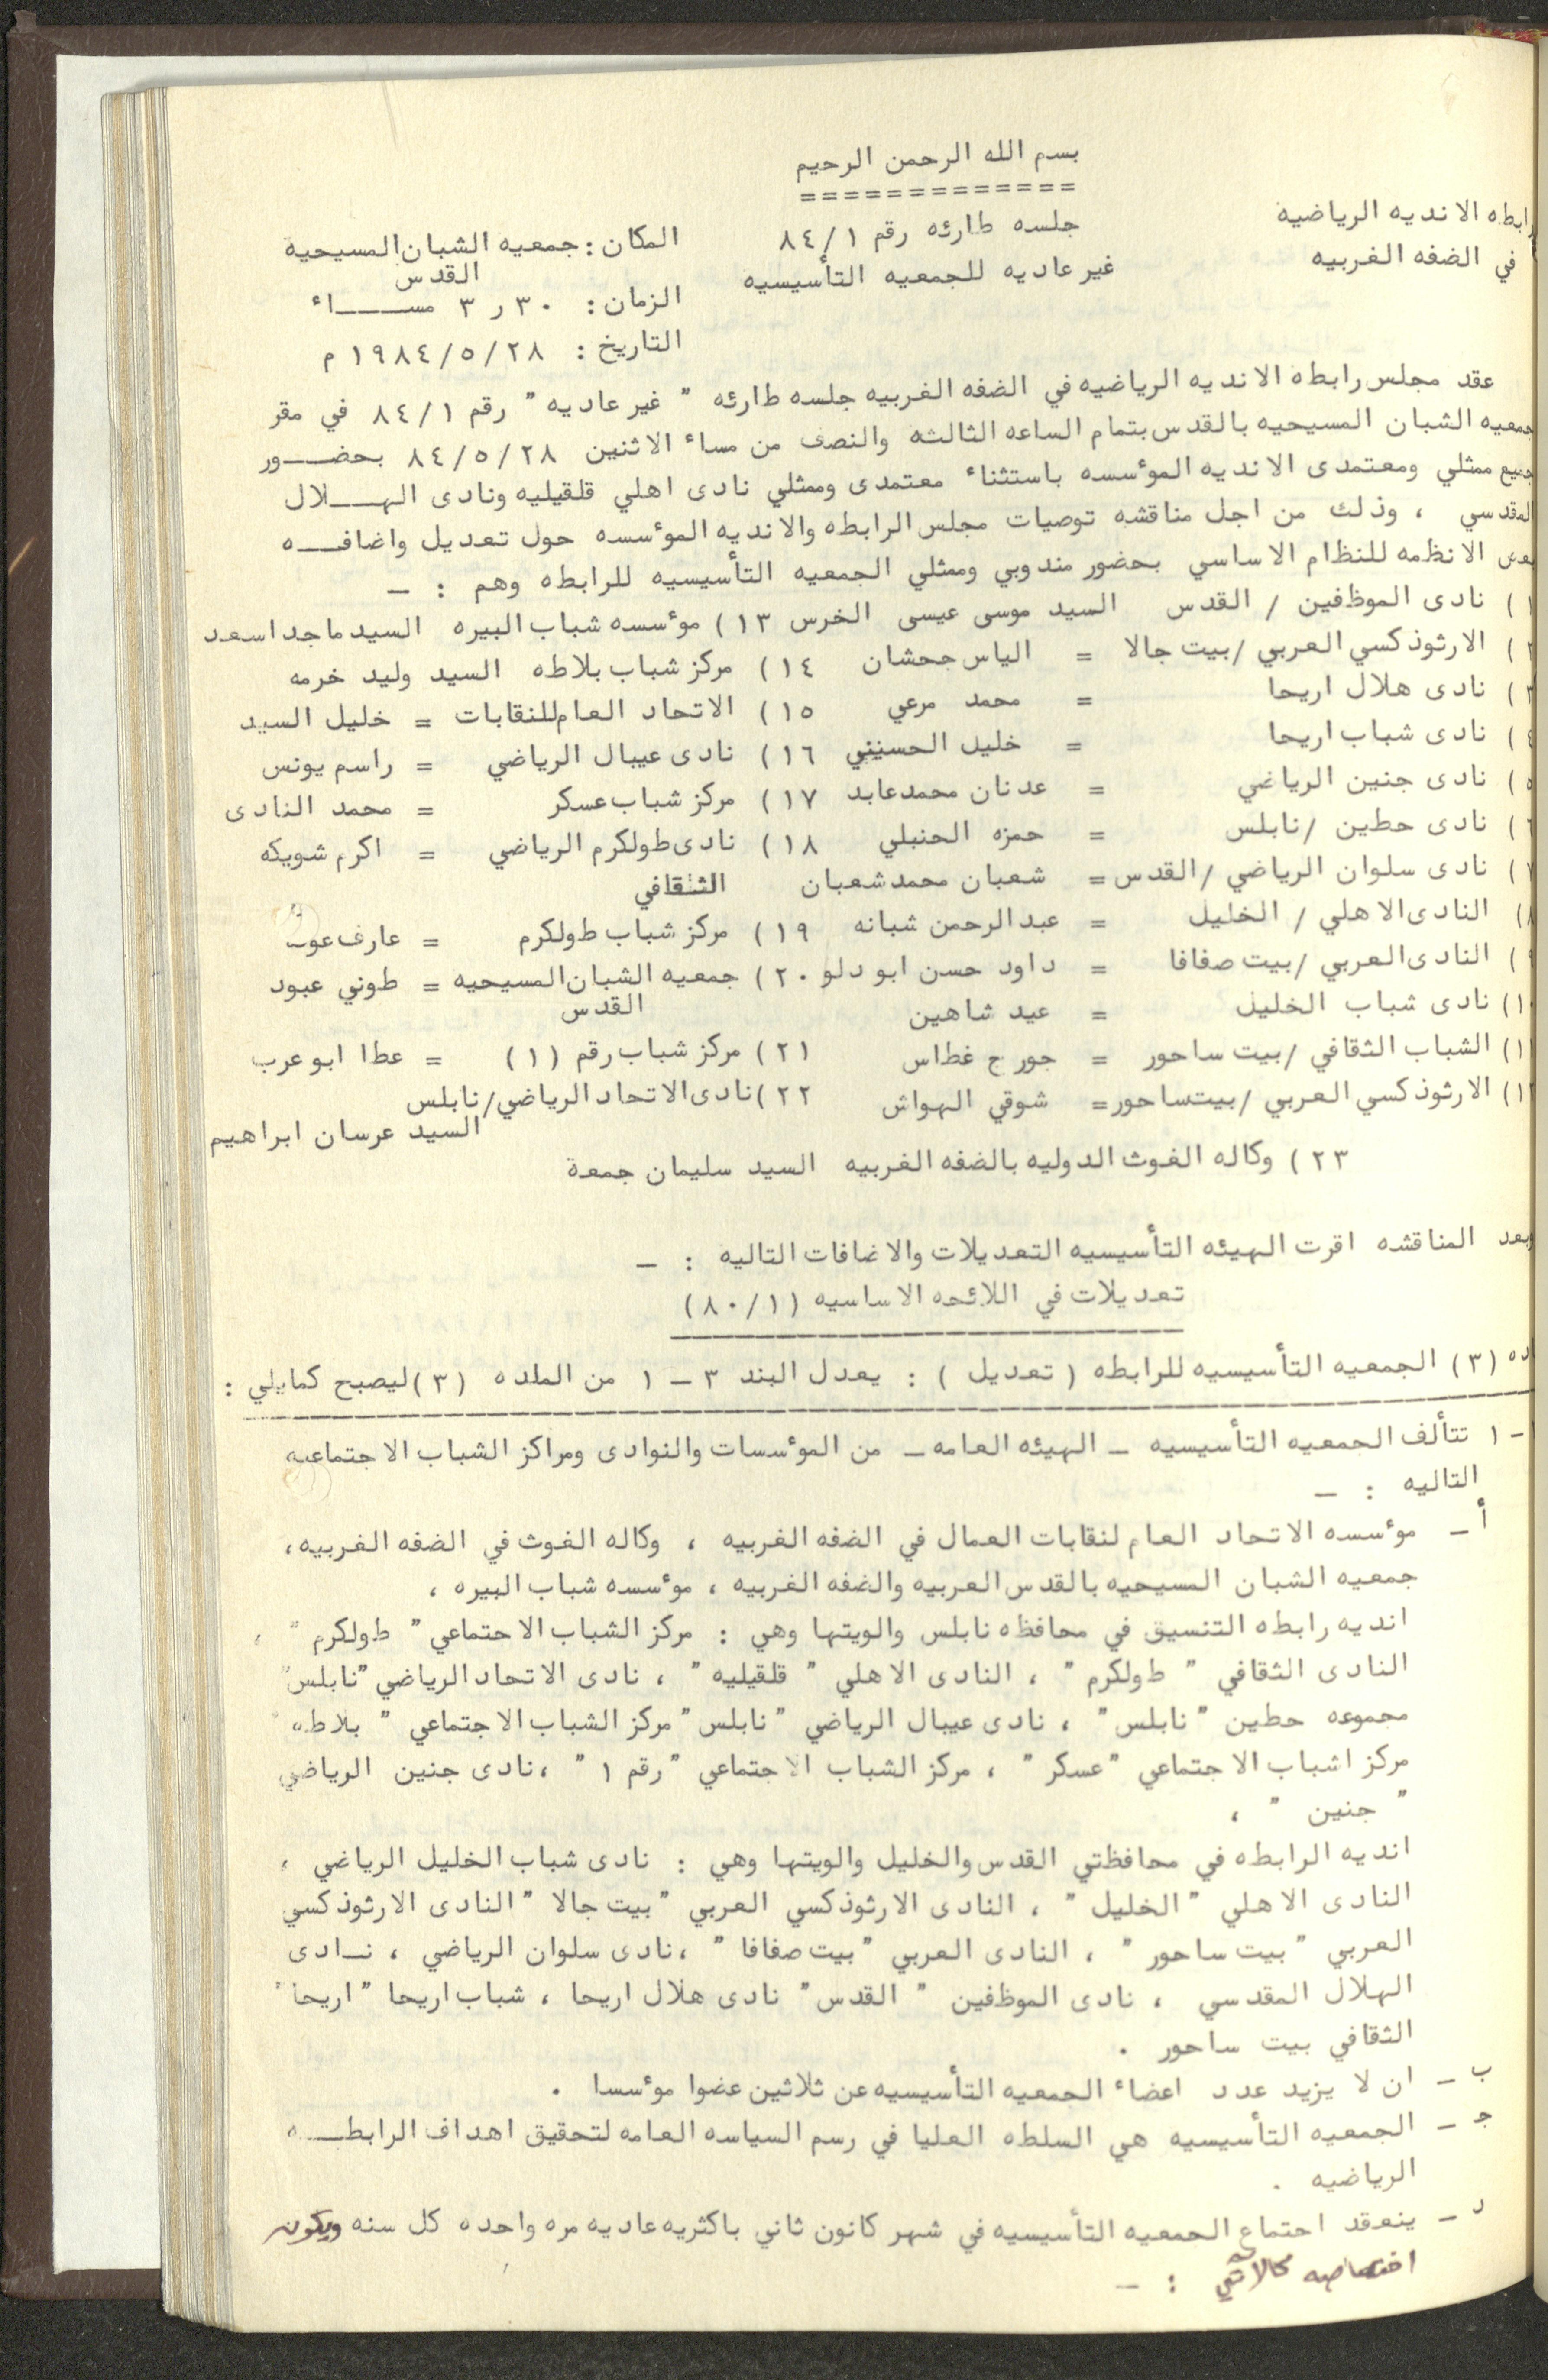 بسم الله الرحمن الرحيم
=============
رابطه الانديه الرياضيه
في الضفه الغربيه
جلسه طارئه رقم ٨٤/١
غير عاديه للجمعيه التأسيسيه
المكان : جمعيه الشبان المسيحيه
القدس
الزمان : ٣٠ ر ٣ مســـاء
التاريخ : ١٩٨٤/٥/٢٨ م
عقد مجلس رابطه الانديه الرياضيه في الضفه الغربيه جلسه طارئه " غير عاديه " رقم ٨٤/١ في مقر
جمعيه الشبان المسيحيه بالقدس بتمام الساعه الثالثه والنصف من مساء الاثنين ٨٤/٥/٢٨ بحضـــور
جميع ممثلي ومعتمدى الانديه المؤسسه باستثناء معتمدى وممثلي نادى اهلي قلقيليه ونادى الهـــلال
المقدسي ، وذلك من اجل مناقشه توصيات مجلس الرابطه والانديه المؤسسه حول تعديل واضافـــه
بعض الانظمه للنظام الاساسي بحضور مندوبي وممثلي الجمعيه التأسيسيه للرابطه وهم : ـ
١) نادى الموظفين / القدس السيد موسى عيسى الخرس ١٣) مؤسسه شباب البيره السيد ماجد اسعد
٢) الارثوذكسي العربي /بيت جالا = الياس جحشان ١٤) مركز شباب بلاطه السيد وليد خرمه
٣) نادى هلال اريحا = محمد مرعي ١٥) الاتحاد العام للنقابات = خليل السيد
٤) نادى شباب اريحا = خليل الحسيني ١٦) نادى عيبال الرياضي = راسم يونس
٥) نادى جنين الرياضي = عدنان محمد عابد ١٧) مركز شباب عسكر = محمد النادى
٦) نادى حطين /نابلس = حمزه الحنبلي ١٨) نادى طولكرم الرياضي = اكرم شويكه
٧) نادى سلوان الرياضي /القدس = شعبان محمد شعبان الثقافي
٨) النادى الاهلي / الخليل = عبد الرحمن شبانه ١٩) مركز شباب طولكرم = عارف
٩) النادى العربي /بيت صفافا = داود حسن ابو دلو ٢٠) جمعيه الشبان المسيحيه = طوني عبود
القدس
١٠) نادى شباب الخليل = عيد شاهين
١١) الشباب الثقافي /بيت ساحور = جورج غطاس ٢١) مركز شباب رقم (١) = عطا ابو عرب
١٢) الارثوذكسي العربي /بيت ساحور = شوقي الهواش ٢٢) نادى الاتحاد الرياضي/نابلس
السيد عرسان ابراهيم
٢٣) وكاله الغوث الدوليه بالضفه الغربيه السيد سليمان جمعة
وبعد المناقشه اقرت الهيئه التأسيسيه التعديلات والاضافات التاليه : ـ
تعديلات في اللائحه الاساسيه (٨٠/١)
ده (٣) الجمعيه التأسيسيه للرابطه ( تعديل ) : يعدل البند ٣ ـ ١ من الماده (٣) ليصبح كمايلي :
ـ ١ تتألف الجمعيه التأسيسيه ـ الهيئه العامه ـ من المؤسسات والنوادى ومراكز الشباب الاجتماعيه
التاليه : ـ
أ ـ مؤسسه الاتحاد العام لنقابات العمال في الضفه الغربيه ، وكاله الغوث في الضفه الغربيه ،
جمعيه الشبان المسيحيه بالقدس العربيه والضفه الغربيه ، مؤسسه شباب البيره ،
انديه رابطه التنسيق في محافظه نابلس والويتها وهي : مركز الشباب الاجتماعي " طولكرم " ،
النادى الثقافي " طولكرم " ، النادى الاهلي " قلقيليه " ، نادى الاتحاد الرياضي "نابلس"
مجموعه حطين " نابلس" ، نادى عيبال الرياضي "نابلس" مركز الشباب الاجتماعي " بلاطه "
مركز اشباب الاجتماعي "عسكر " ، مركز الشباب الاجتماعي "رقم ١ " ، نادى جنين الرياضي
" جنين " ،
انديه الرابطه في محافظتي القدس والخليل والويتها وهي : نادى شباب الخليل الرياضي ،
النادى الاهلي "الخليل " ، النادى الارثوذكسي العربي "بيت جالا " النادى الارثوذكسي
العربي "بيت ساحور" ، النادى العربي "بيت صفافا " ، نادى سلوان الرياضي ، نــادى
الهلال المقدسي ، نادى الموظفين " القدس" نادى هلال اريحا ، شباب اريحا "اريحا "
الثقافي بيت ساحور .
ب ـ ان لا يزيد عدد اعضاء الجمعيه التأسيسيه عن ثلاثين عضوا مؤسسا .
جـ ـ الجمعيه التأسيسيه هي السلطه العليا في رسم السياسه العامه لتحقيق اهداف الرابطـــه
الرياضيه .
د ـ ينعقد اجتماع الجمعيه التأسيسيه في شهر كانون ثاني باكثريه عاديه مره واحده كل سنه ويكون
اختصاصه كالاتي : ـ